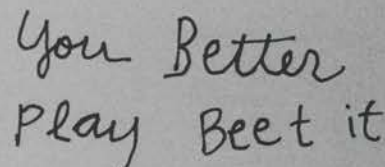 You Better
Play Beet it